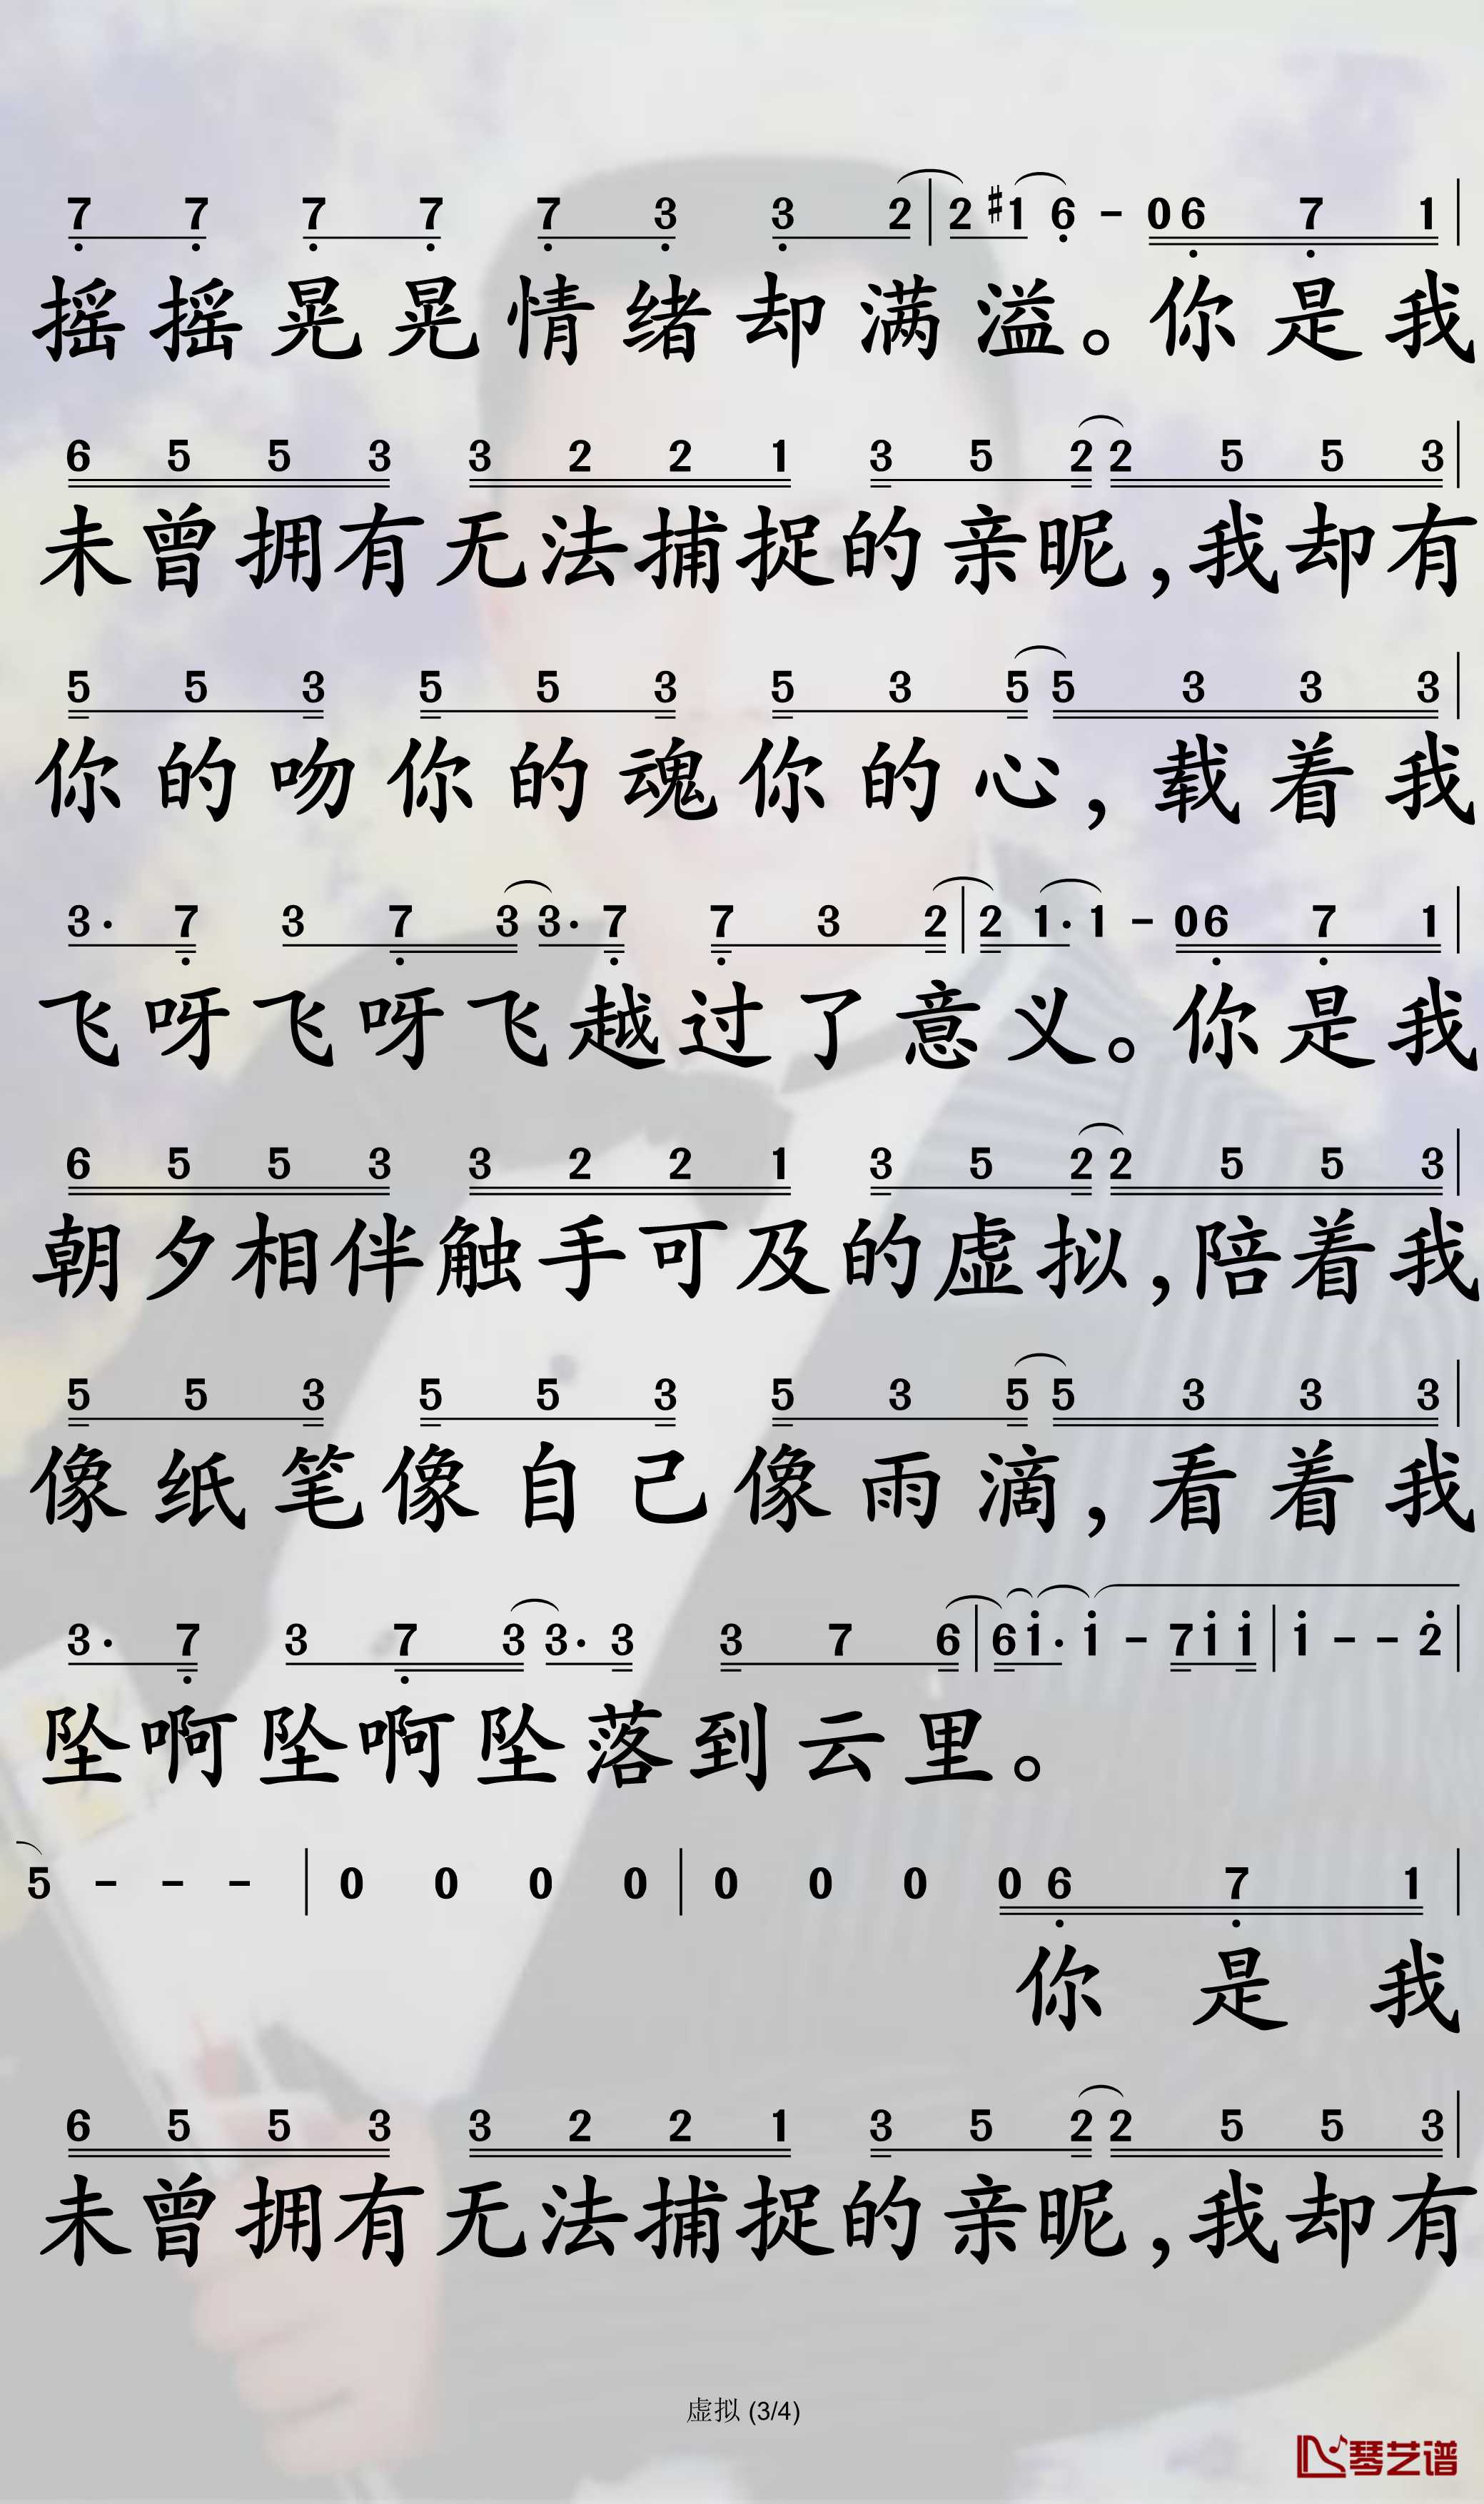 7 7 7 7 7 3 3 2 | 2 #1 6 - 0 6 7 1 |
摇摇晃晃情绪却满溢。你是我
6 5 5 3 3 2 2 1 3 5 2 2 5 5 3 |
未曾拥有无法捕捉的亲昵,我却有
5 5 3 5 5 3 5 3 5 5 3 3 3 |
你的吻你的魂你的心,载着我
3· 7 3 7 3 3· 7 7 3 2 | 2 1· 1 - 0 6 7 1 |
飞呀飞呀飞越过了意义。你是我
6 5 5 3 3 2 2 1 3 5 2 2 5 5 3 |
朝夕相伴触手可及的虚拟,陪着我
5 5 3 5 5 3 5 3 5 5 3 3 3 |
像纸笔像自己像雨滴,看着我
3· 7 3 7 3 3· 3 3 7 6 | 6 1· 1 - 7 1 1 | 1 - - 2 |
坠啊坠啊坠落到云里。
5 - - - | 0 0 0 0 | 0 0 0 0 6 7 1 |
你是我
6 5 5 3 3 2 2 1 3 5 2 2 5 5 3 |
未曾拥有无法捕捉的亲昵,我却有
虚拟 (3/4)
琴艺谱